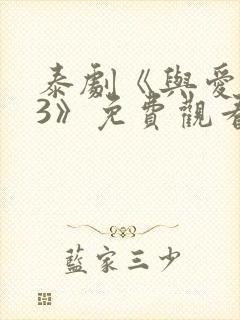 泰劇《與愛
3》免費觀看
藍家三少